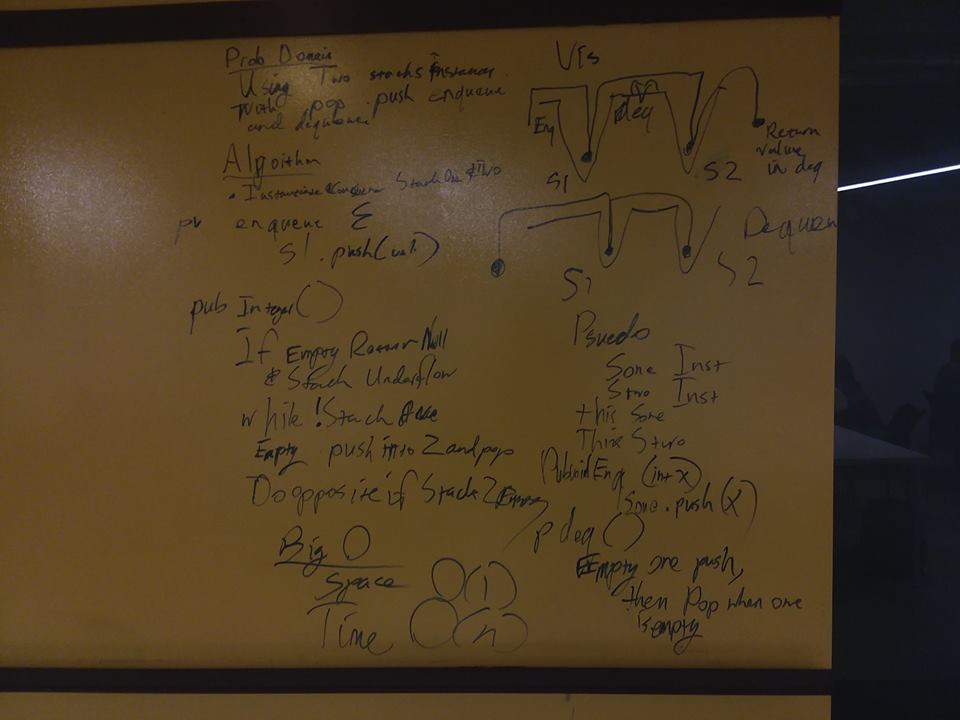 Prob Domain
Using Two stacks instances
With pop push enqueue
and dequeue
Algorithm
Stack One & Two
enqueue
S1.push(val)
pub Integer()
If Empty Return Null
& Stack Underflow
while !Stack One
Empty push into 2 and pop
Do opposite if Stack 2 Empty
Big O
Space O(1)
Time O(n)
VIs
Enq
deq
S1
S2
Return
value
in deq
Dequeu
S1
S2
Psuedo
Sone Inst
Stwo Inst
this Sone
This Stwo
Pubvoid Enq (int x)
Sone.push(x)
p deq ()
Empty one push,
then Pop when one
is empty